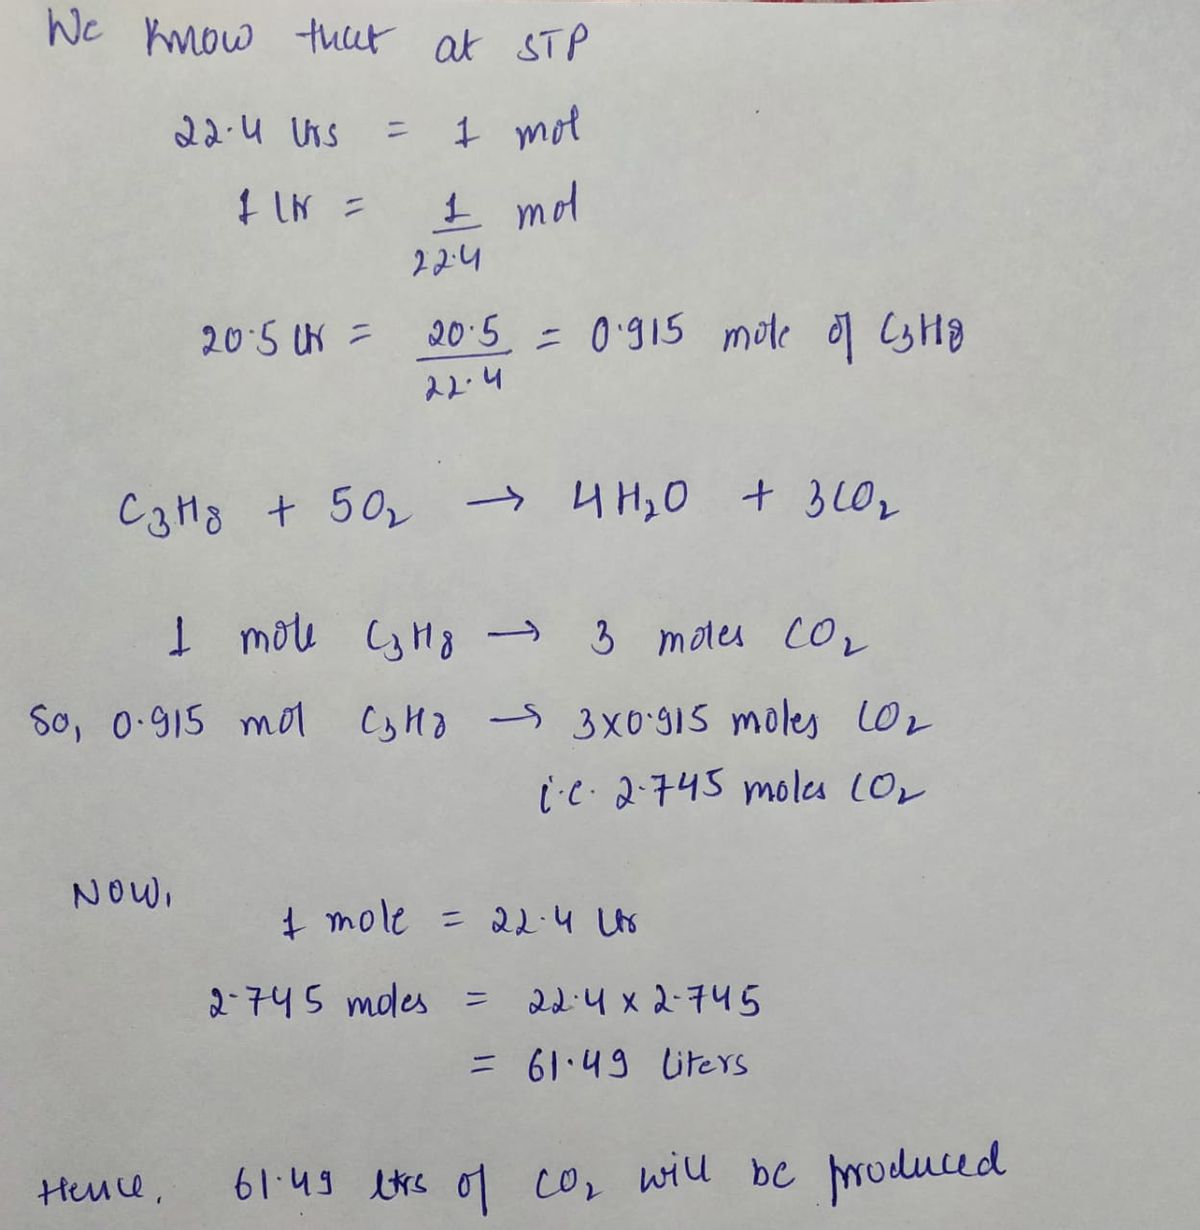 We know that at STP
22.4 ltrs = 1 mol
1 ltr = 1/22.4 mol
20.5 ltr = 20.5/22.4 = 0.915 mole of C₃H₈
C₃H₈ + 5O₂ → 4H₂O + 3CO₂
1 mole C₃H₈ → 3 moles CO₂
So, 0.915 mol C₃H₈ → 3×0.915 moles CO₂
i.e. 2.745 moles CO₂
Now,
1 mole = 22.4 ltrs
2.745 moles = 22.4 × 2.745
= 61.49 liters
Hence, 61.49 ltrs of CO₂ will be produced